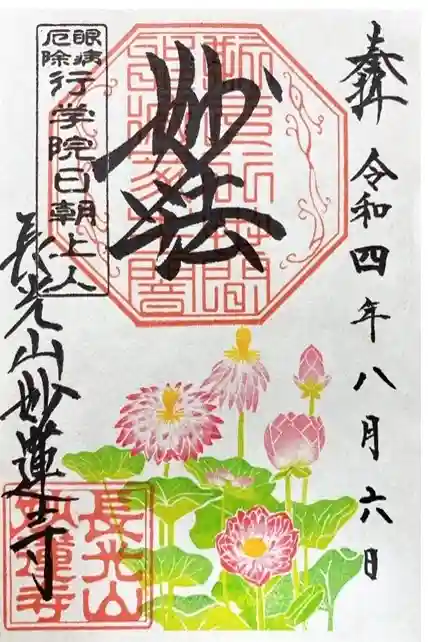 奉拝
令和四年八月六日
妙法
眼病
厄除
行学院日朝上人
長光山妙蓮寺
長光山
妙蓮寺